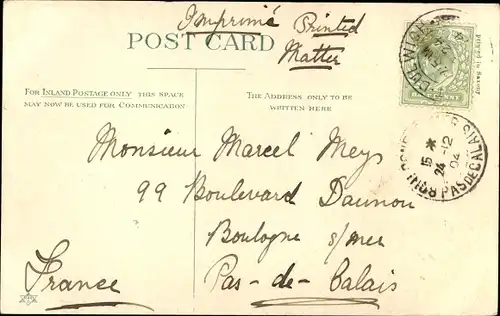 Imprimé Printed
Matter
POST CARD
FOR INLAND POSTAGE ONLY THIS SPACE
MAY NOW BE USED FOR COMMUNICATION
THE ADDRESS ONLY TO BE
WRITTEN HERE
Printed in Saxony
15 *
24-12
04
PAS DE CALAIS
Monsieur Marcel Meys
99 Boulevard Daunou
Boulogne s/mer
Pas-de-Calais
France